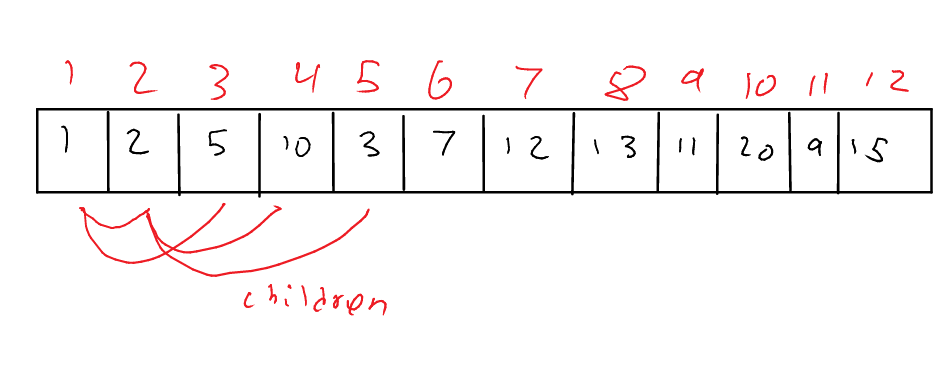 1 2 3 4 5 6 7 8 9 10 11 12
1 2 5 10 3 7 12 13 11 20 9 15
children